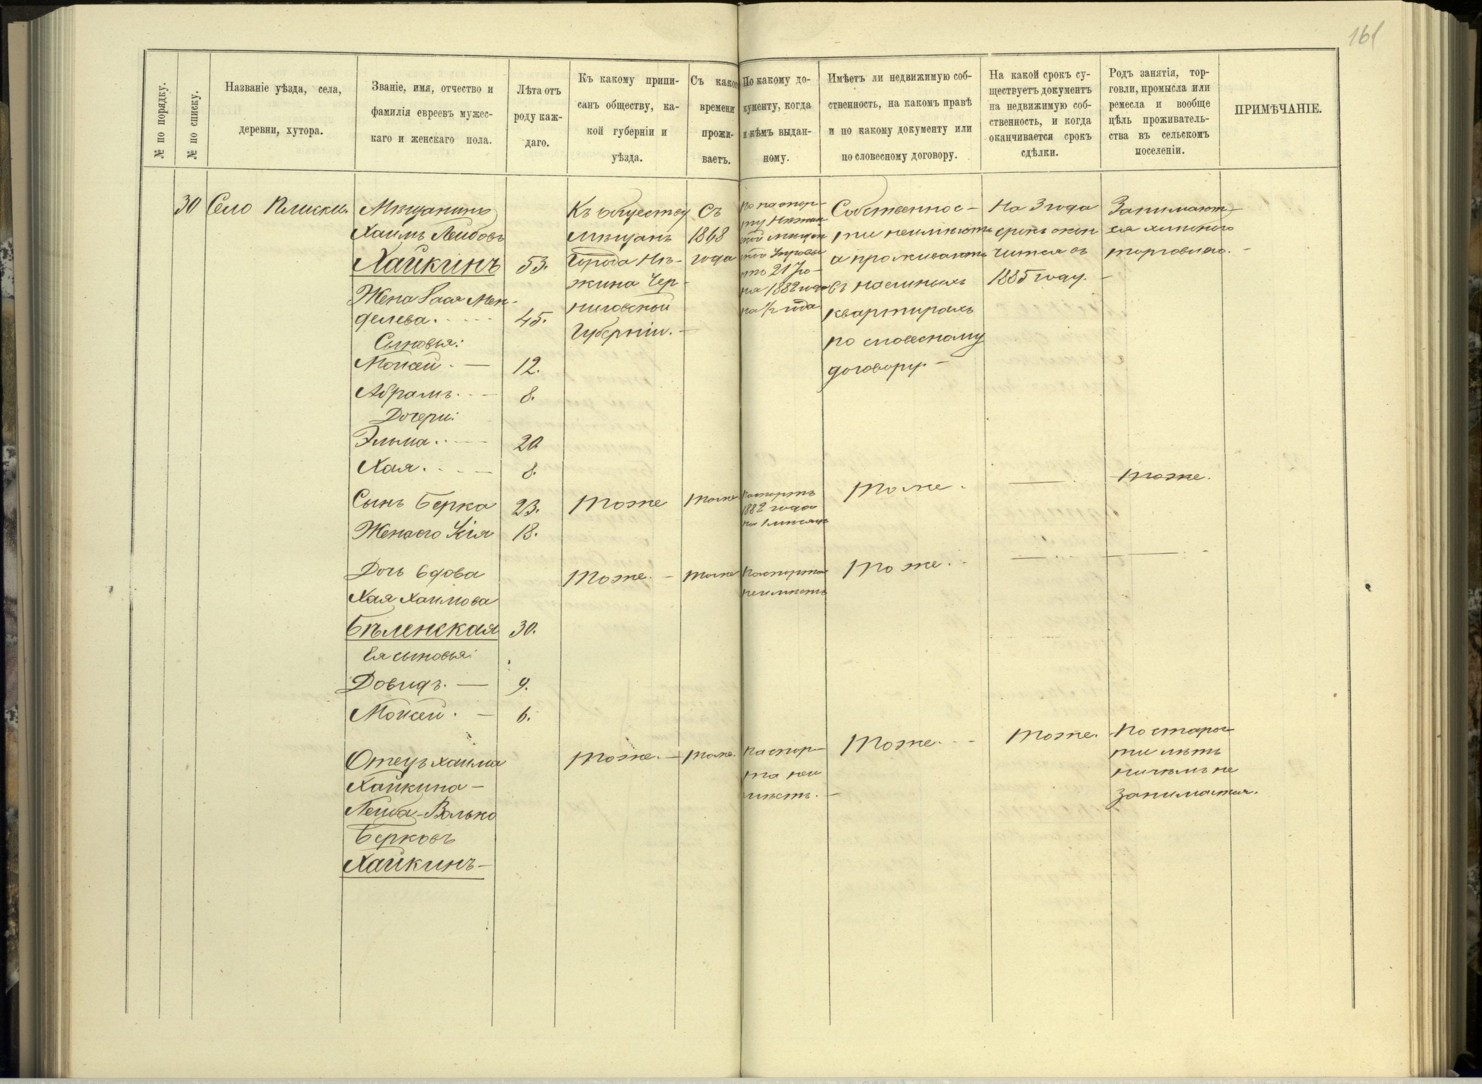 161
№ по порядку.
№ по списку.
Названіе уѣзда, села,
деревни, хутора.
Званіе, имя, отчество и
фамилія евреевъ мужес-
каго и женскаго пола.
Лѣта отъ
роду каж-
даго.
Къ какому припи-
санъ обществу, ка-
кой губерніи и
уѣзда.
Съ какого
времени
прожи-
ваетъ.
По какому до-
кументу, когда
и кѣмъ выдан-
ному.
Имѣетъ ли недвижимую соб-
ственность, на какомъ правѣ
и по какому документу или
по словесному договору.
На какой срокъ су-
ществуетъ документъ
на недвижимую соб-
ственность, и когда
оканчивается срокъ
сдѣлки.
Родъ занятія, тор-
говли, промысла или
ремесла и вообще
цѣль проживатель-
ства въ сельскомъ
поселеніи.
ПРИМѢЧАНІЕ.
30
Село Плиски
Мѣщанинъ
Хаимъ Лейбовъ
Хайкинъ
53.
Жена Рася Мен-
делева.
45.
Сыновья:
Мойсей. —
12.
Абрамъ.
8.
Дочери:
Эльма.
20
Хая.
8.
Къ обществу
мѣщанъ
Города Нѣ-
жина Чер-
ниговской
Губерніи. —
Съ
1868
года
По паспор-
ту Нѣжин
ской мѣщан
ской Управы
отъ 21 Ію-
ня 1882 года
на ½ года
Собственнос-
ти неимѣютъ
а проживаютъ
въ наемныхъ
квартирахъ
по словесному
договору. —
На 3 года
срокъ окон
чится въ
1885 году. —
Занимают-
ся хлѣбного
торговлею. —
Сынъ Берка
23.
Тоже
тоже
Паспортъ
1882 года
Тоже.
Тоже.
Жена его
18.
Дочь вдова
Хая Хаимова
Бѣленская
30.
Тоже. —
тоже
Паспорта
неимѣетъ
Тоже.
Ея сыновья:
Довидъ. —
9.
Мойсей. —
6.
Отецъ Хаима
Хайкина —
Лейба-Волько
Берковъ
Хайкинъ —
Тоже. —
тоже.
Паспор-
та неи
мѣетъ. —
Тоже. —
Тоже.
По старос-
ти лѣтъ
ничѣмъ не
занимается.